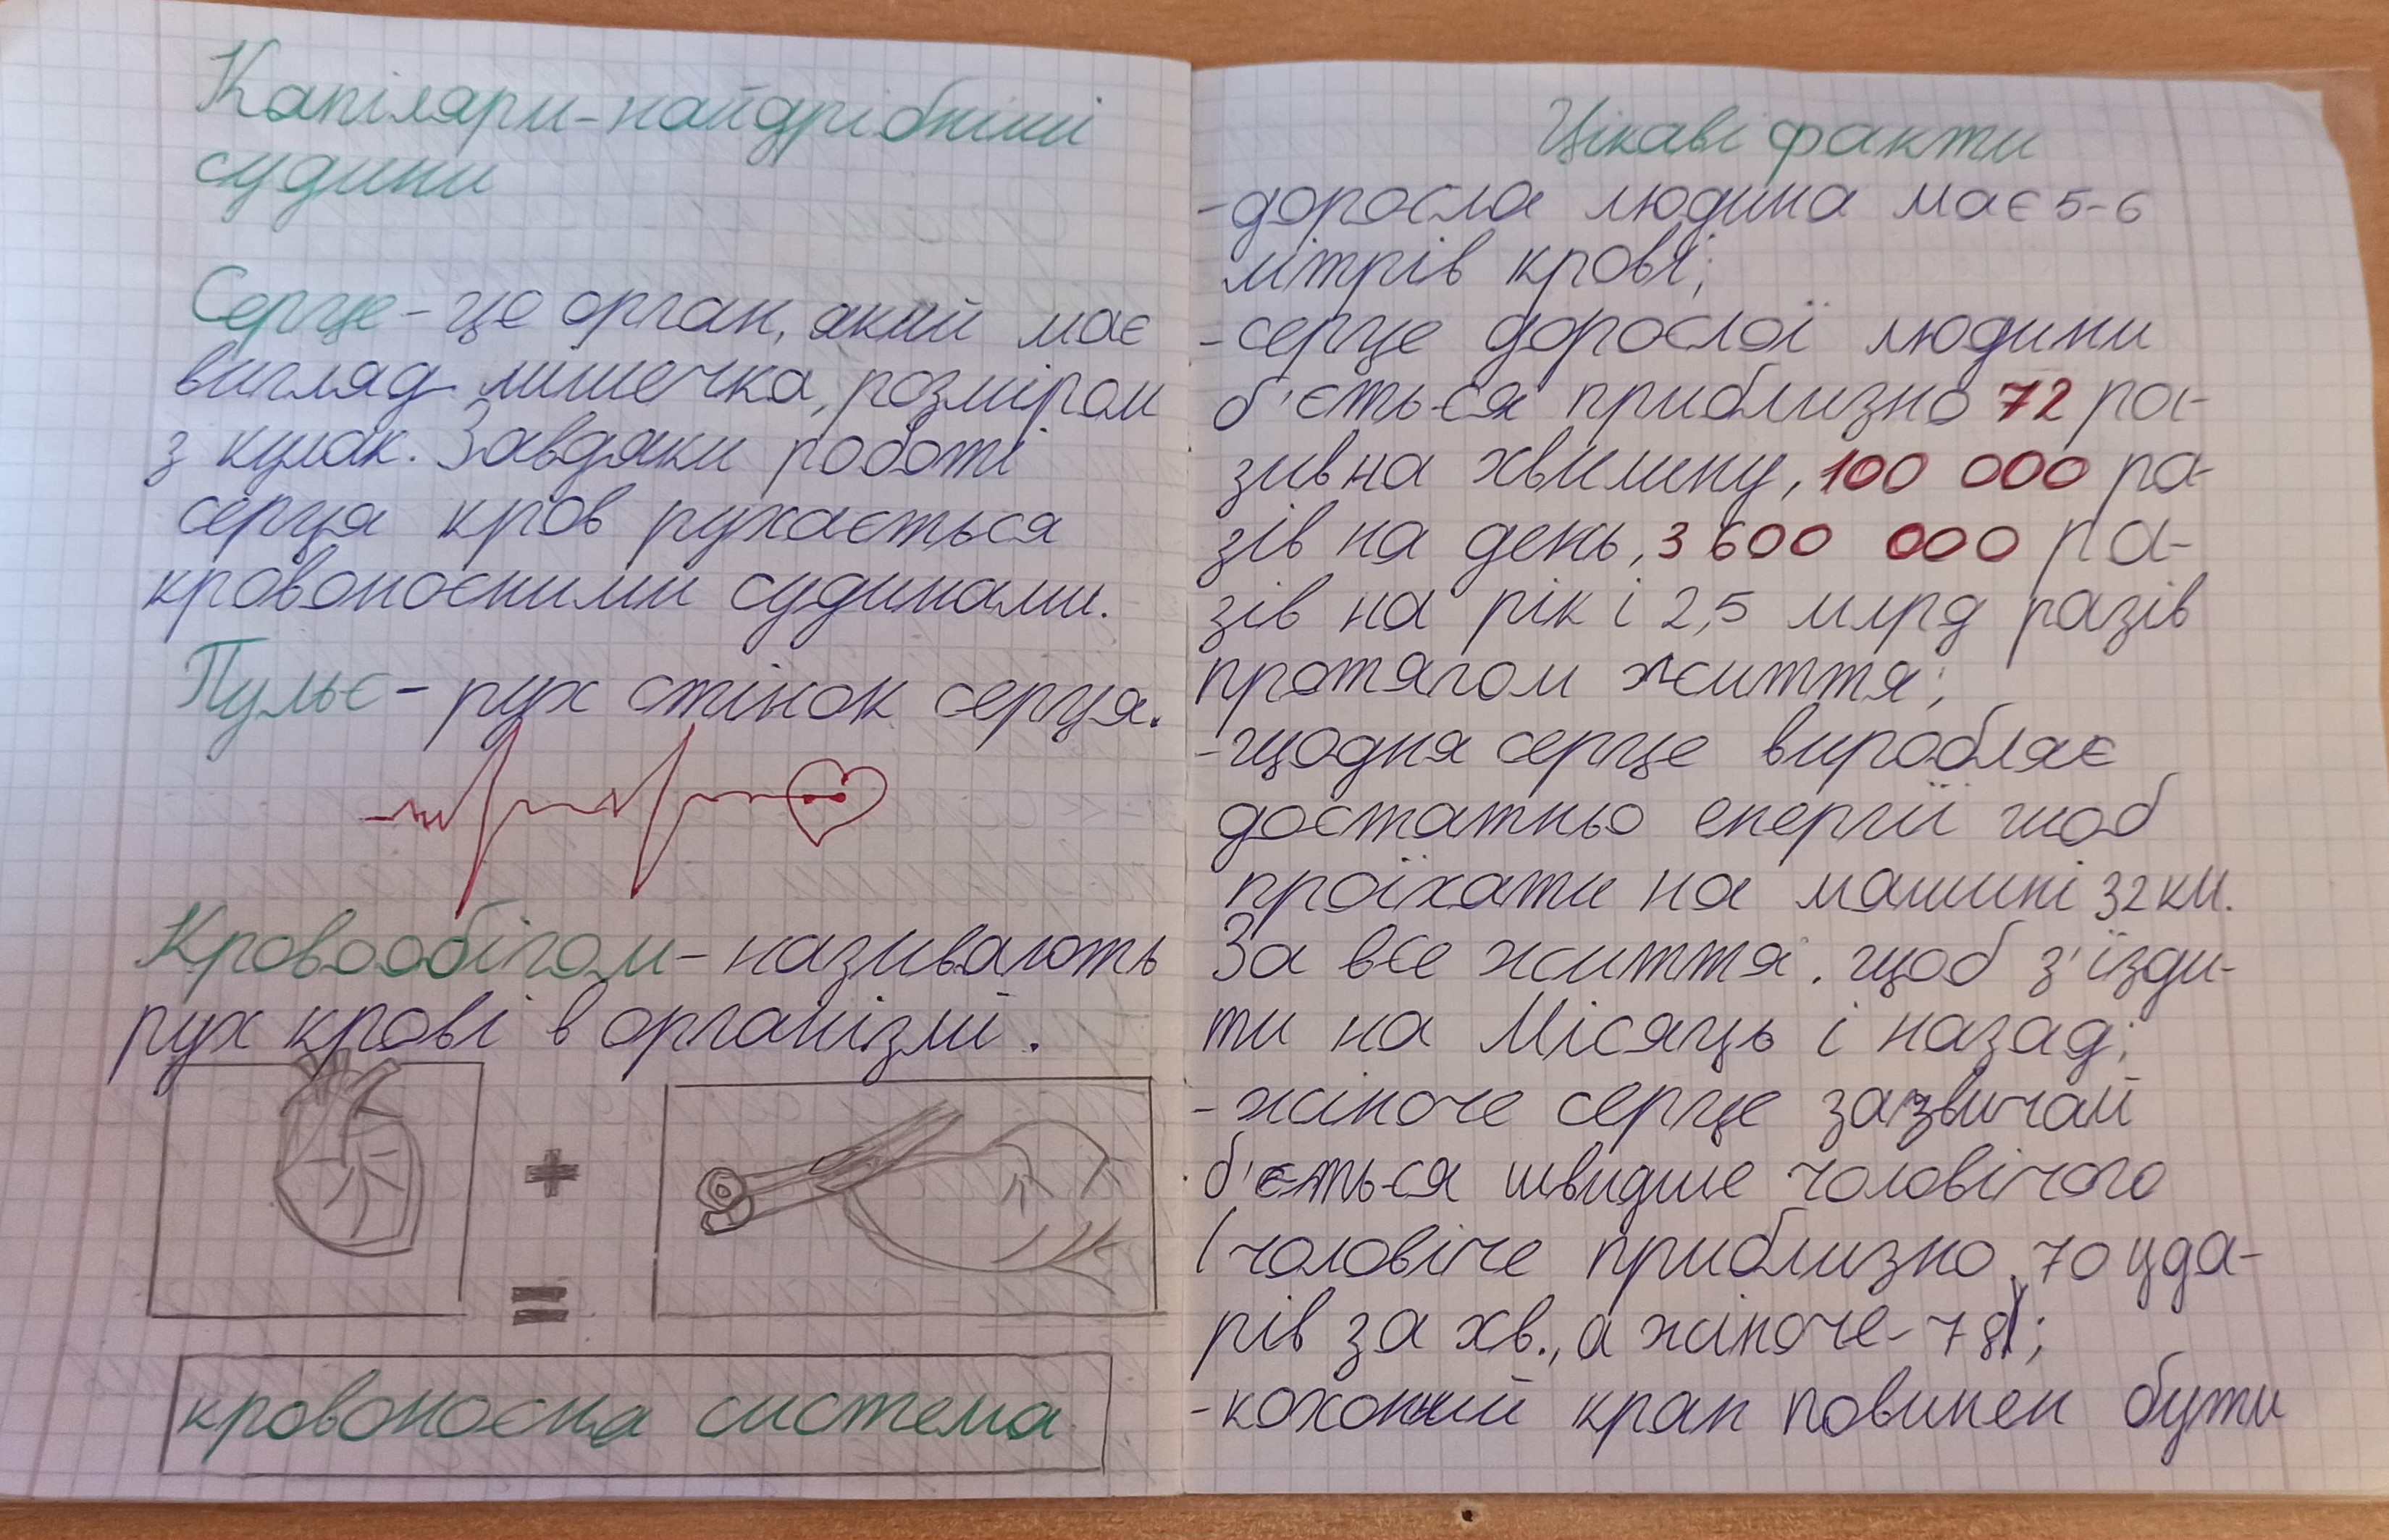 Капіляри - найдрібніші
судини
Серце - це орган, який має
вигляд мішечка, розміром
з кулак. Завдяки роботі
серця кров рухається
кровоносними судинами.
Пульс - рух стінок серця.
Кровообігом - називають
рух крові в організмі.
+
=
кровоносна система
Цікаві факти
- доросла людина має 5-6
літрів крові;
- серце дорослої людини
б'ється приблизно 72 ра-
зив на хвилину, 100 000 ра-
зів на день, 3 600 000 ра-
зів на рік і 2,5 млрд разів
протягом життя;
- щодня серце виробляє
достатньо енергії щоб
проїхати на машині 32 км.
За все життя. щоб з'їзди-
ти на Місяць і назад;
- жіноче серце зазвичай
б'ється швидше чоловічого
(чоловіче приблизно 70 уда-
рів за хв., а жіноче - 78);
- кухонний кран повинен бути